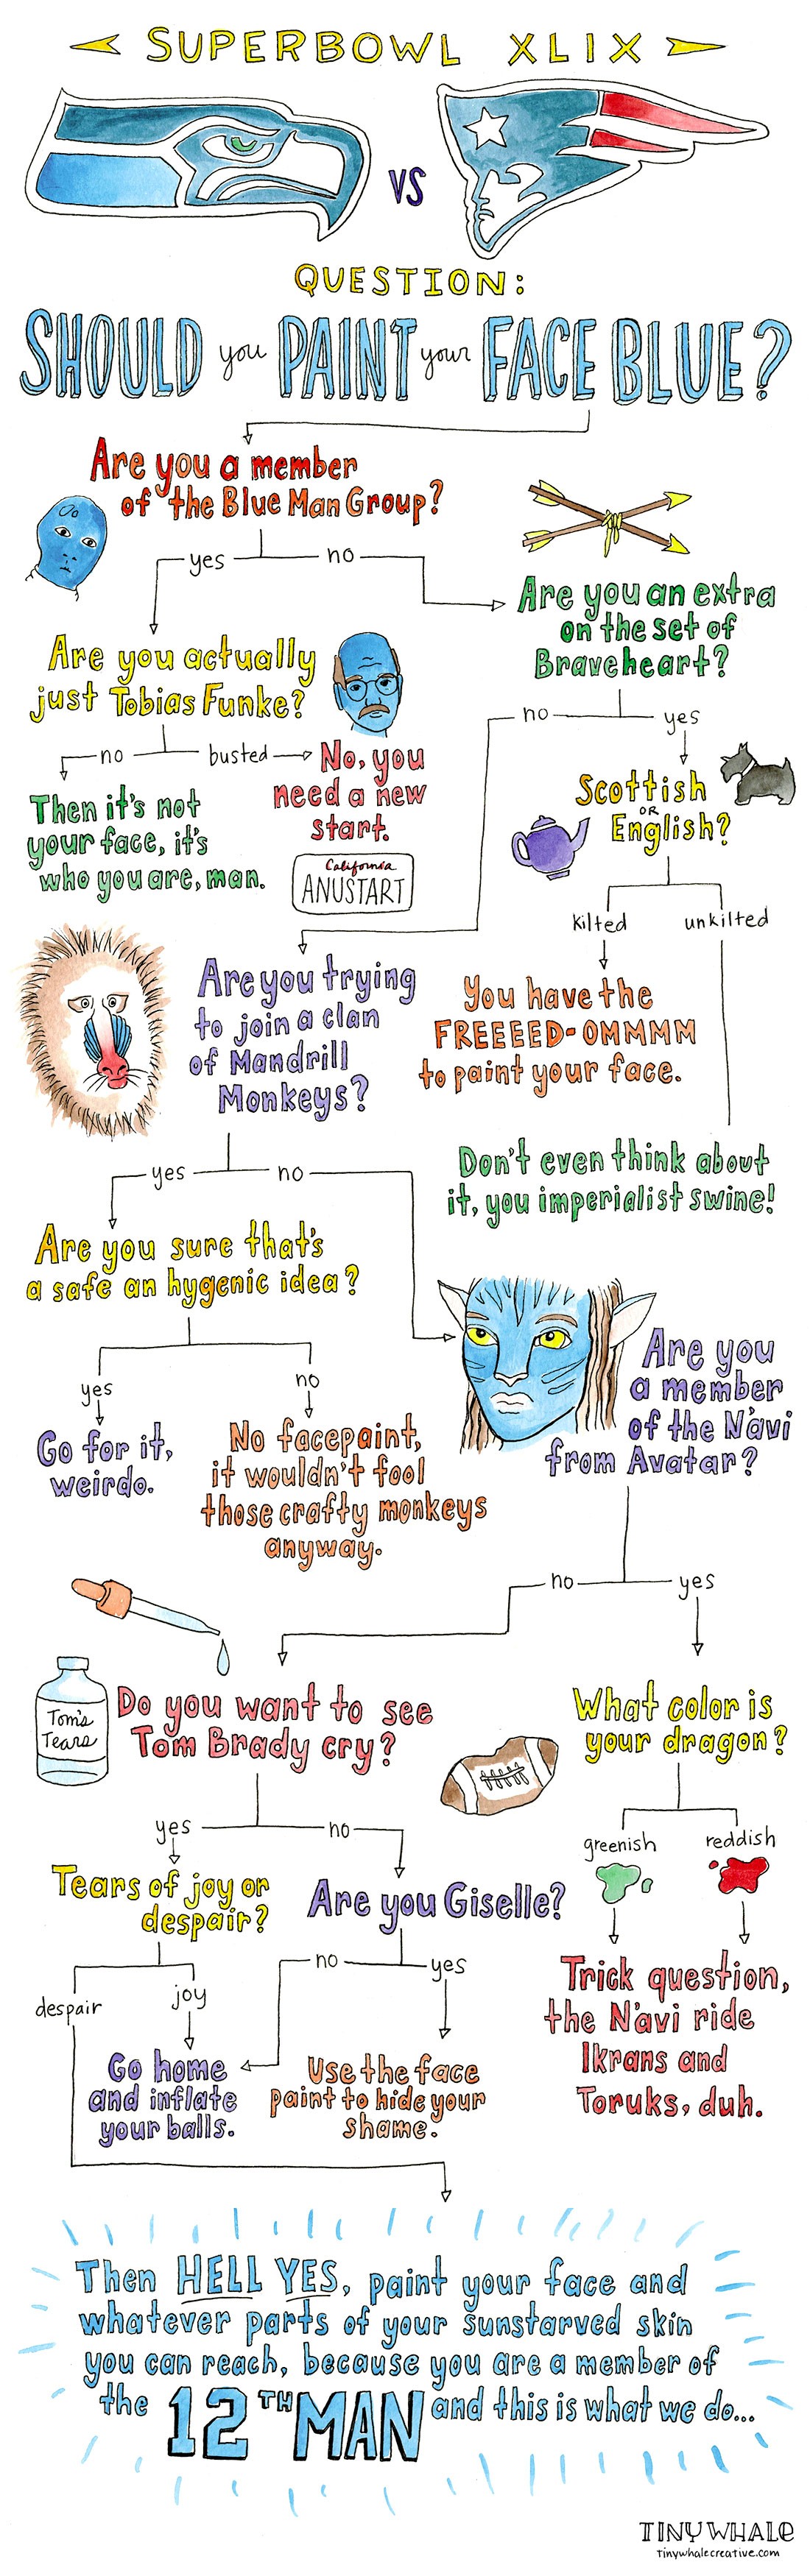 SUPERBOWL XLIX
VS
QUESTION:
SHOULD you PAINT your FACE BLUE?
Are you a member
of the Blue Man Group?
yes
no
Are you an extra
on the set of
Braveheart?
Are you actually
just Tobias Funke?
no
yes
no
busted
No, you
need a new
start.
Then it's not
your face, it's
who you are, man.
California
ANUSTART
Scottish
OR
English?
kilted
unkilted
Are you trying
to join a clan
of Mandrill
Monkeys?
You have the
FREEEED-OMMMM
to paint your face.
Don't even think about
it, you imperialist swine!
yes
no
Are you sure that's
a safe an hygenic idea?
yes
no
Go for it,
weirdo.
No facepaint,
it wouldn't fool
those crafty monkeys
anyway.
Are you
a member
of the N'avi
from Avatar?
no
yes
Tom's
Tears
Do you want to see
Tom Brady cry?
What color is
your dragon?
yes
no
greenish
reddish
Tears of joy or
despair?
Are you Giselle?
no
yes
despair
joy
Go home
and inflate
your balls.
Use the face
paint to hide your
shame.
Trick question,
the N'avi ride
Ikrans and
Toruks, duh.
Then HELL YES, paint your face and
whatever parts of your sunstarved skin
you can reach, because you are a member of
the 12TH MAN and this is what we do...
TINY WHALE
tinywhalecreative.com